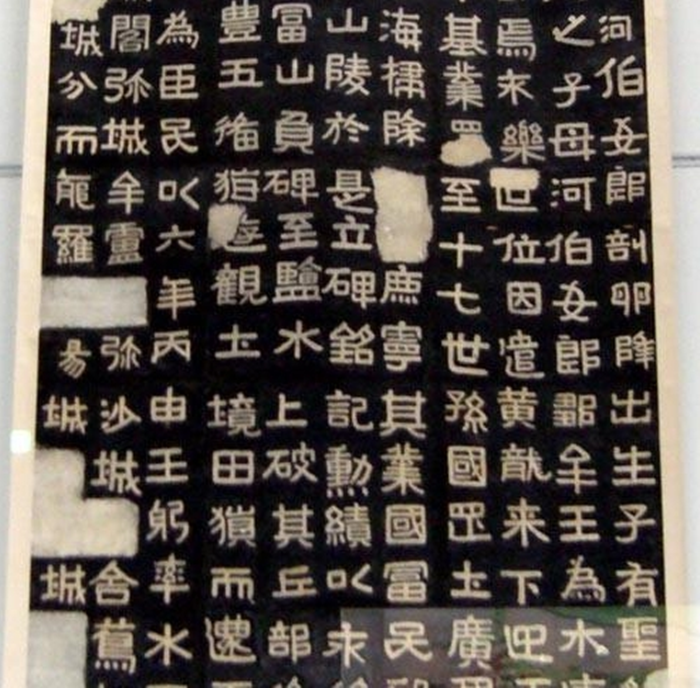 河伯女郎剖卵降出生子有聖
之子母河伯女郎鄒牟王為木
焉不樂世位因遣黄龍来下迎
基業至十七世孫國罡上廣
海掃除庶寧其業國富民
山陵於是立碑銘記勳績以永
富山負碑至鹽水上破其丘部
豊五俻猶遊觀土境田獵而還
為臣民以六年丙申王躬率水
閣弥城牟盧弥沙城舍蔦
城分而龍羅昜城城